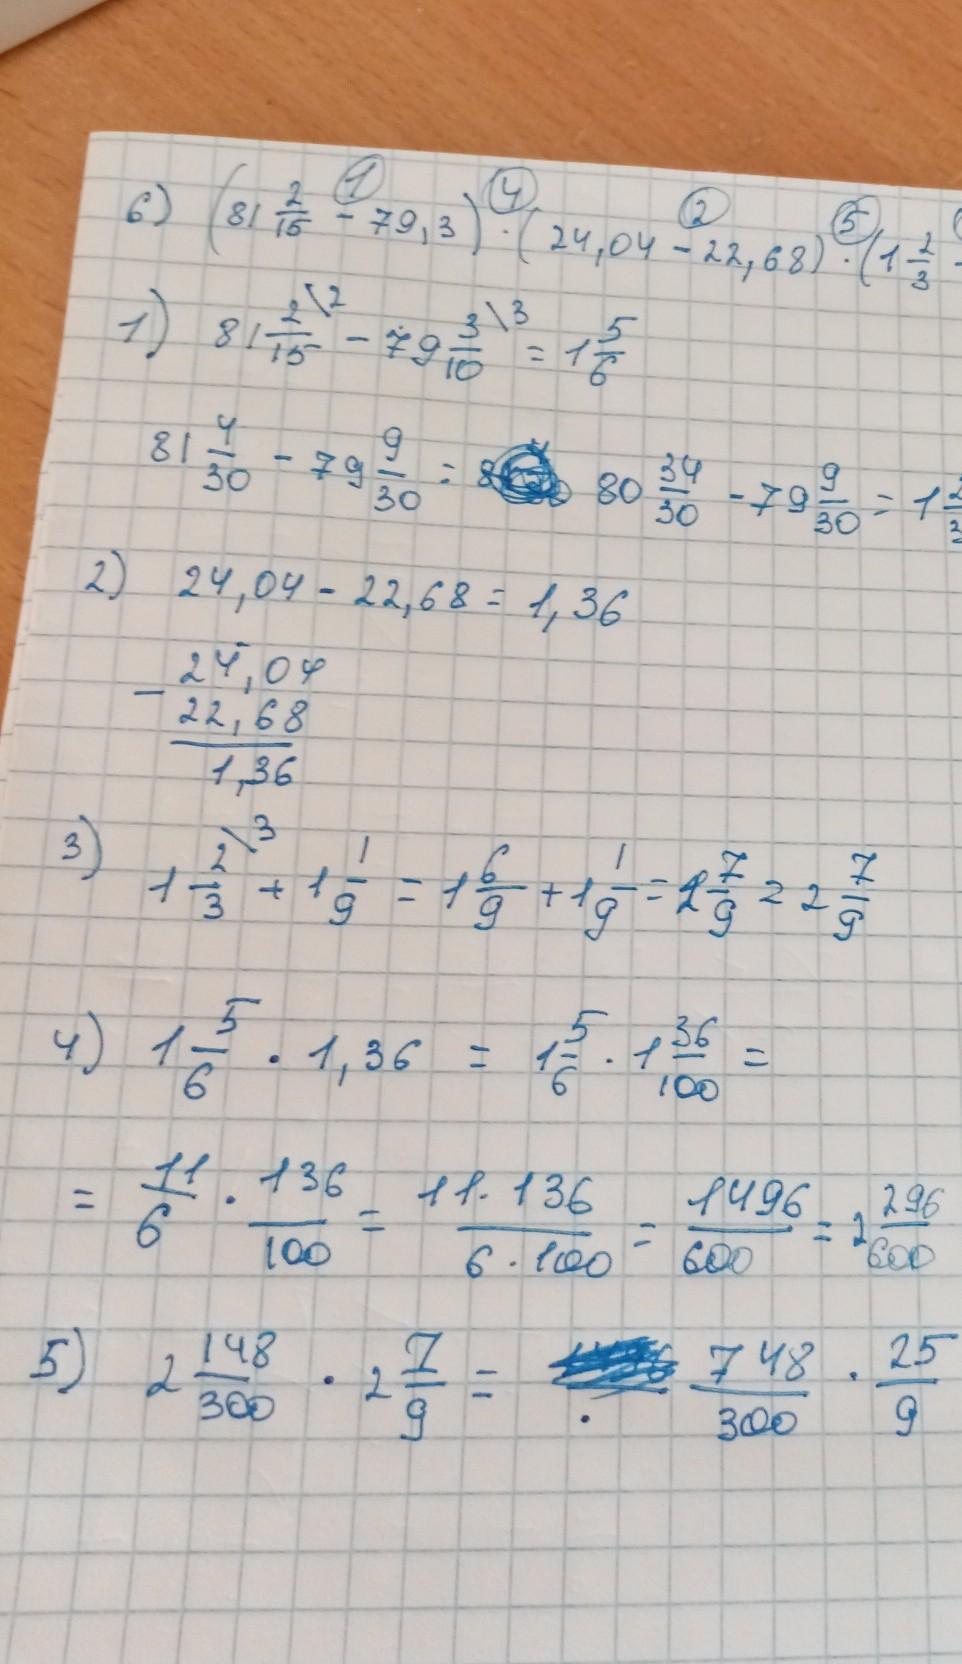 6) (81 2/15 - 79,3) · (24,04 - 22,68) · (1 2/3
1 4 2 5
1) 81 2/15 \2 - 79 3/10 \3 = 1 5/6
81 4/30 - 79 9/30 = 80 34/30 - 79 9/30 = 1
2) 24,04 - 22,68 = 1,36
- 24,04
22,68
1,36
3) 1 2/3 \3 + 1 1/9 = 1 6/9 + 1 1/9 = 2 7/9 = 2 7/9
4) 1 5/6 · 1,36 = 1 5/6 · 1 36/100 =
= 11/6 · 136/100 = 11·136/6·100 = 1496/600 = 2 296/600
5) 2 148/300 · 2 7/9 = 748/300 · 25/9